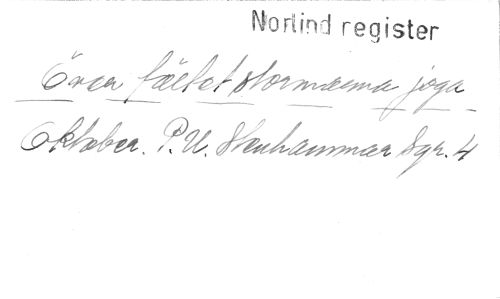 Norlind register
Över fältet stormarna jaga
Oktober. P.U. Stenhammar Sgr. 4